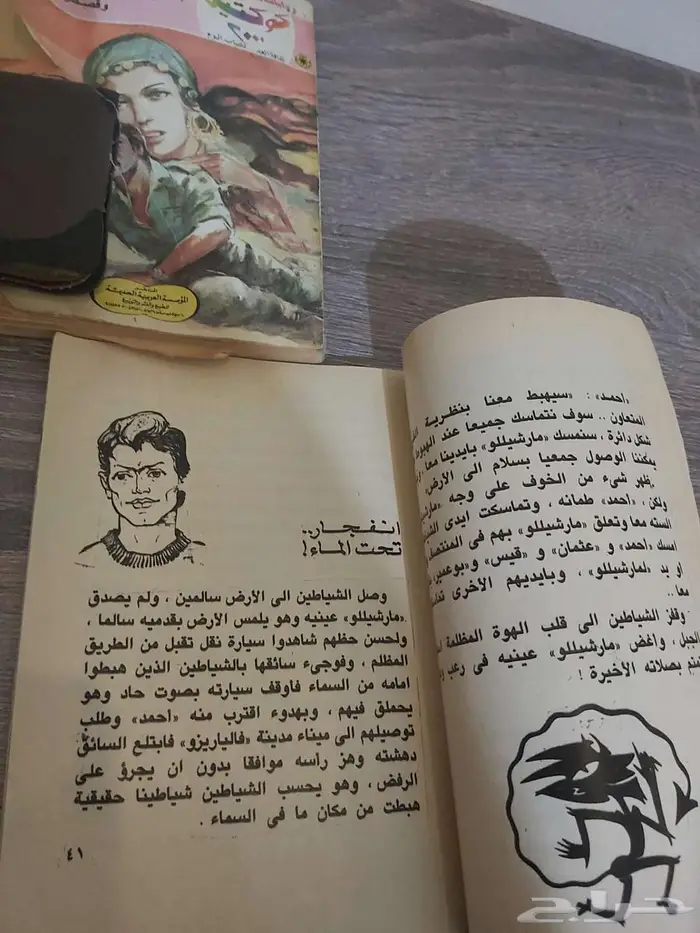 كوكتيل
٢٠٠٠
المؤسسة العربية الحديثة
«احمد» : «سيهبط معنا بنظرية
المتعاون .. سوف نتماسك جميعا عند الهبوط
شكل دائرة ، سنمسك «مارشيللو» بايدينا معا
يمكننا الوصول جميعا بسلام الى الأرض
يظهر شىء من الخوف على وجه
ولكن ، «احمد» طمانه ، وتماسكت ايدى
الستة معا وتعلق «مارشيللو» بهم فى المنتصف
امسك «احمد» و «عثمان» و «قيس» و«بوعمير»
او يد «لمارشيللو» ، وبايديهم الأخرى
معا ..
وقفز الشياطين الى قلب الهوة المظلمة
الجبل ، واغمض «مارشيللو» عينيه فى رعب
بصلاته الأخيرة !
انفجار..
تحت الماء!
وصل الشياطين الى الأرض سالمين ، ولم يصدق
«مارشيللو» عينيه وهو يلمس الأرض بقدميه سالما ،
ولحسن حظهم شاهدوا سيارة نقل تقبل من الطريق
المظلم ، وفوجىء سائقها بالشياطين الذين هبطوا
امامه من السماء فاوقف سيارته بصوت حاد وهو
يحملق فيهم ، وبهدوء اقترب منه «احمد» وطلب
توصيلهم الى ميناء مدينة «فالباريزو» فابتلع السائق
دهشته وهز راسه موافقا بدون ان يجرؤ على
الرفض ، وهو يحسب الشياطين شياطينا حقيقية
هبطت من مكان ما فى السماء .
٤١
حراج